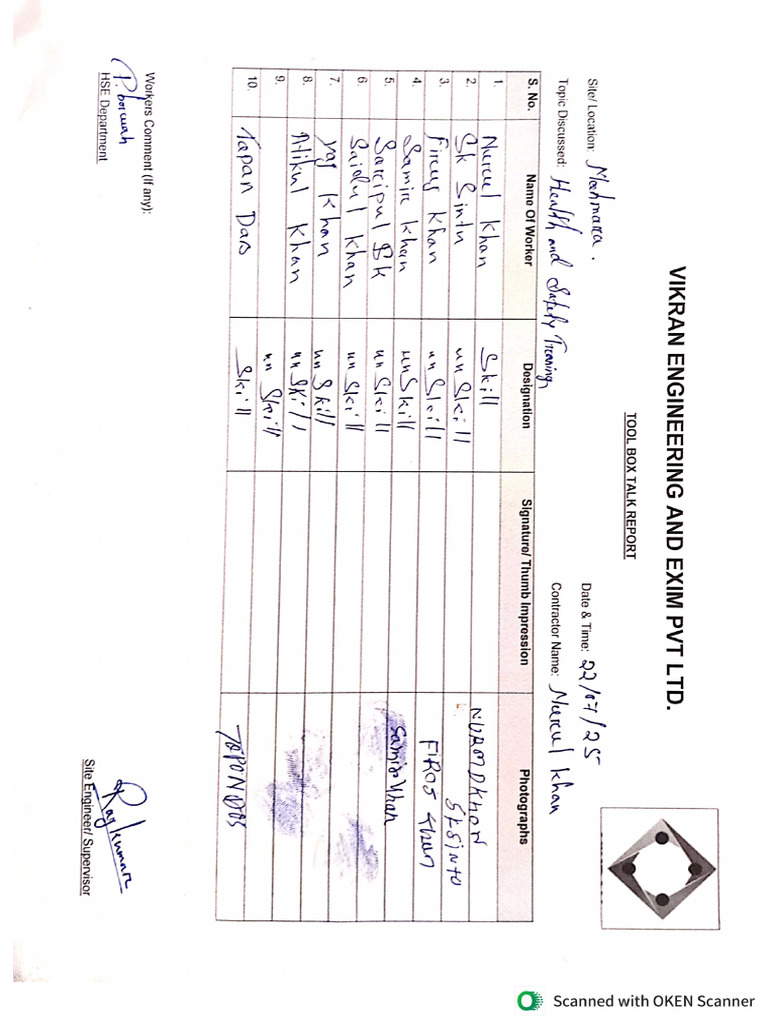 VIKRAN ENGINEERING AND EXIM PVT LTD.
TOOL BOX TALK REPORT
Site/ Location: Moahmara. Date & Time: 22/07/25
Topic Discussed: Health and Safety Traning Contractor Name: Nurul Khan
S. No. Name Of Worker Designation Signature/ Thumb Impression Photographs
1. Nurul Khan Skill NURMDKHON
2. Sk Sintu un Skill SKSinto
3. Firoj Khan un Skill FIROS Khan
4. Samir Khan un Skill Samir Khan
5. Saripul SK un Skill
6. Saidul Khan un Skill
7. raj Khan un Skill
8. Atikul Khan un Skill
9. un Skill
10. Tapan Das Skill TOPON DOS
Workers Comment (If any):
P. borwah
HSE Department
Raj kumar
Site Engineer/ Supervisor
Scanned with OKEN Scanner